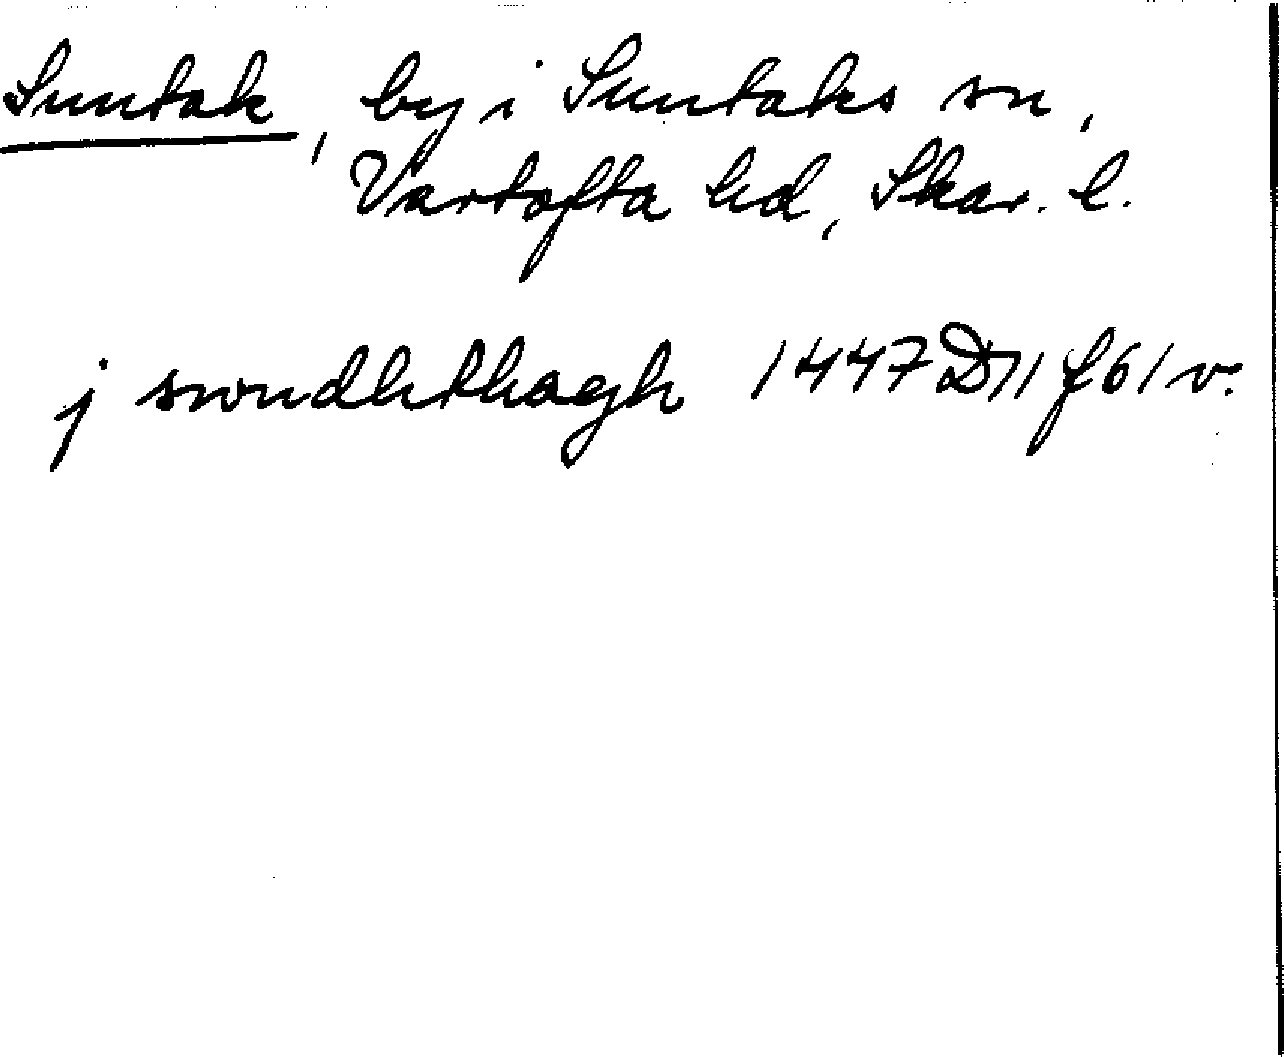 Suntak, by i Suntaks sn,
Vartofta hd, Skar. l.
j swndhthagh 1447 D11 f61v.